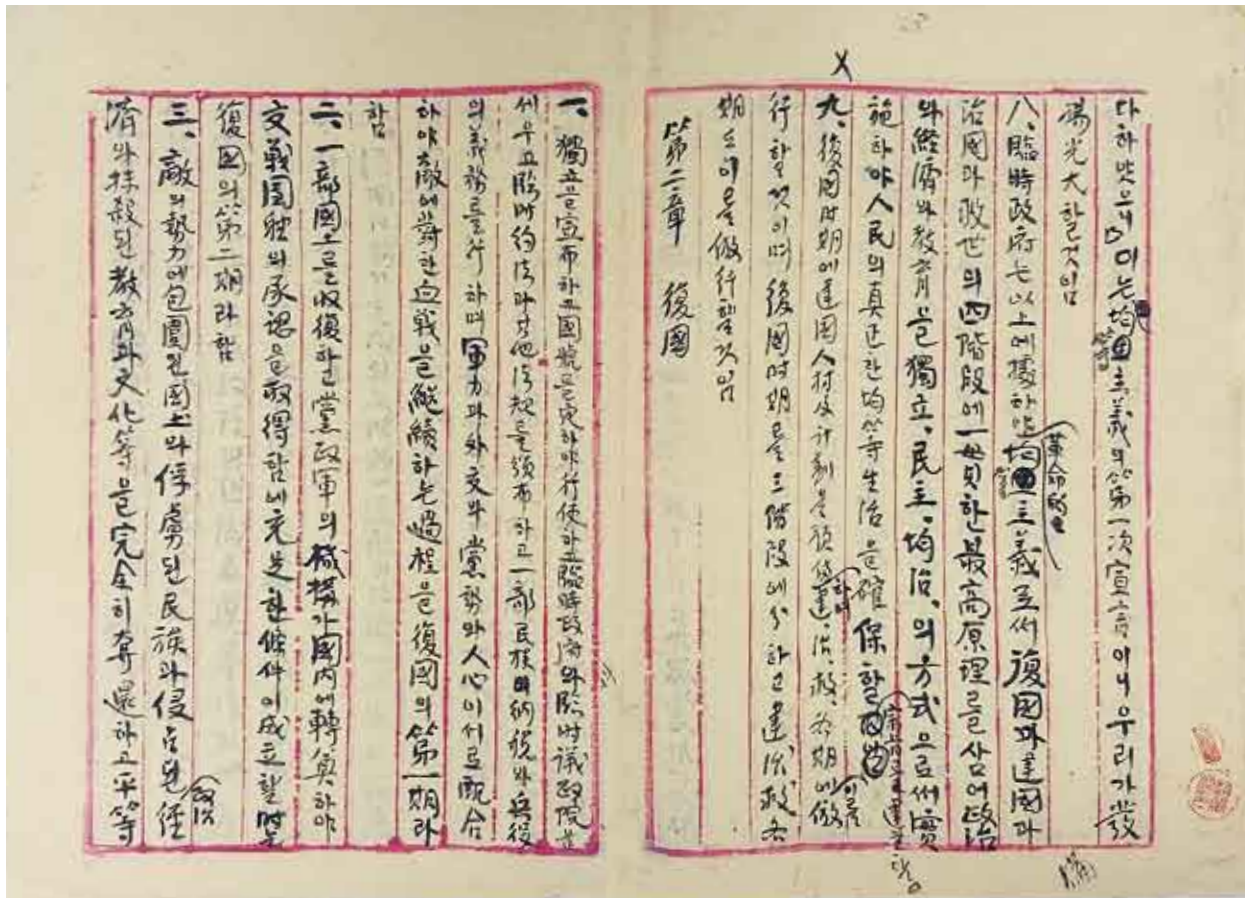 다하엿으니 이는均等主義의第一次宣言이니우리가發
揚光大할것임
八、臨時政府는以上에據하야革命的均等主義로써復國과建國과
治國과救世의四階段에一貫한最高原理를삼어政治
와經濟와敎育을獨立、民主、均治、의方式으로써實
施하야人民의真正한均等生活을確保할
九、復國時期에建國人材及計劃을預備하며建、治、救、各期에倣
行할것이며復國時期를三階段에分하고建治救各
期도이를倣行할것임
第二章 復國
一、獨立을宣布하고國號를定하야行使하고臨時政府와臨時議政院을
세우고臨時約法과其他法規를頒布하고一部民族의納稅와兵役
의義務를行하며軍力과外交와黨勢와人心이서로配合
하야敵에對한血戰을繼續하는過程을復國의第一期라
함
二、一部國土를收復할黨政軍의機構가國内에轉奠하야
交戰團軆의承認을取得함에充足한條件이成立할時를
復國의第二期라함
三、敵의勢力에包圍된國土와俘虜된民族과侵占된政治經
濟와抹殺된敎育과文化等을完全히奪還하고平等